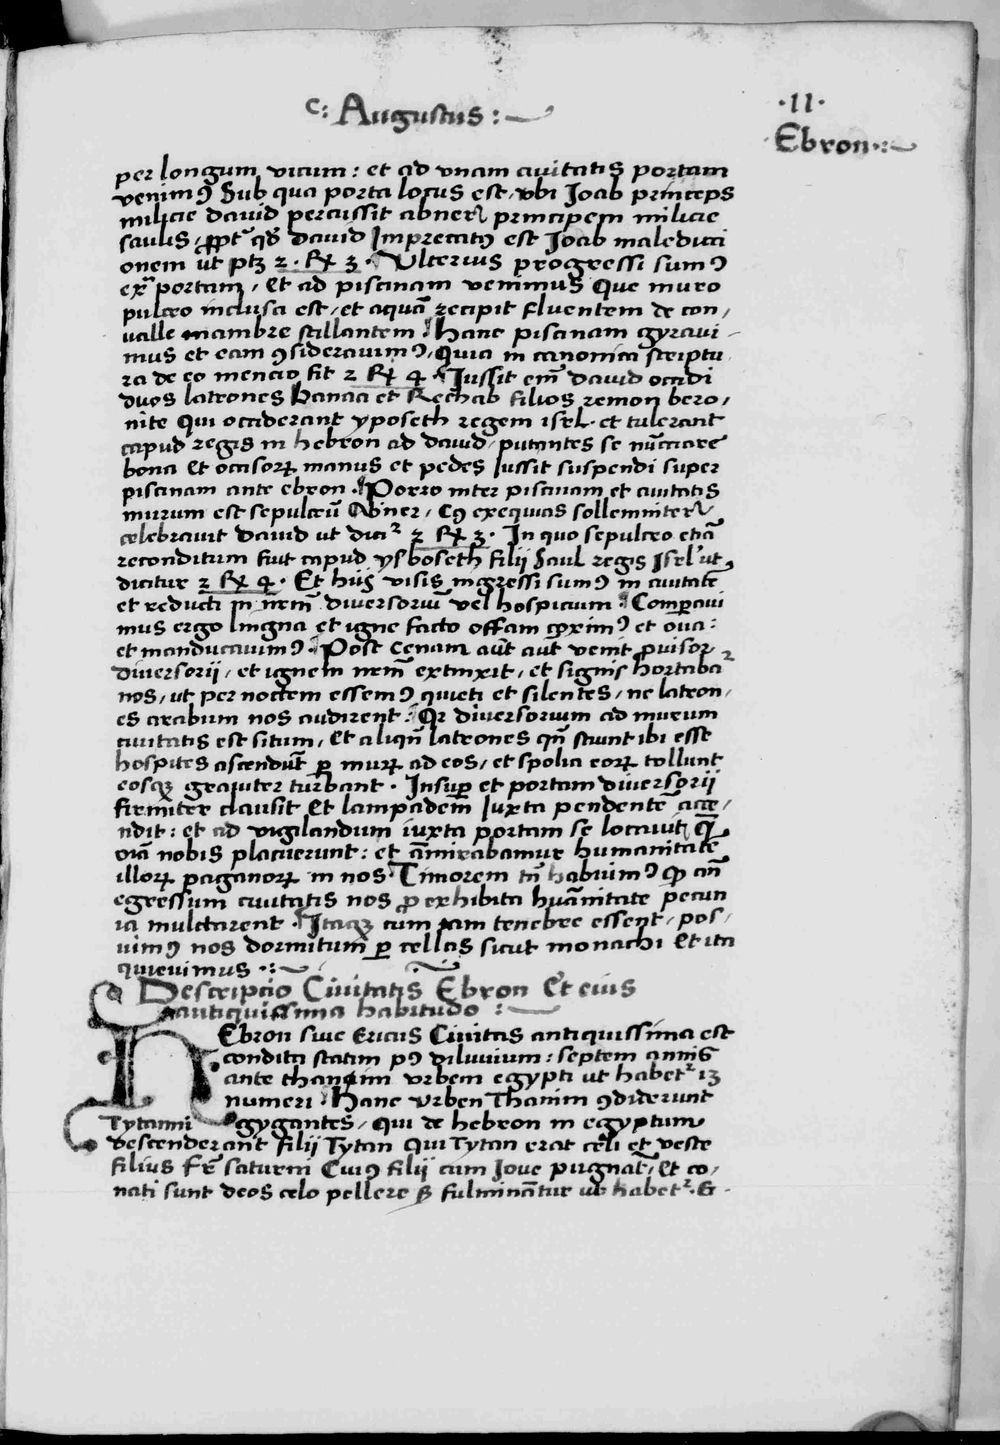 c: Augustus :
·11·
Ebron ·:
per longum vicum : et ad vnam ciuitatis portam
venimꝰ Sub qua porta locus est, vbi Joab princeps
milicie dauid percussit abner principem milicie
saulis, ꝓpt̄ qd̄ dauid Imprecatꝰ est Joab maledicti
onem ut ptꝫ 2 · Rꝝ 3 · Vlterius progressi sumꝰ
ext̄ portam, Et ad piscinam venimus Que muro
pulcro inclusa est, et aquā recipit fluentem de con,
ualle mambre stillantem Hanc piscinam gyraui
mus et eam ꝯsiderauimꝰ, Quia in canonica scriptu
ra de eo mencio fit 2 Rꝝ 4 · Jussit em̄ dauid occidi
duos latrones Banaa et Rechab filios remon bero,
nite Qui occiderant yposeth regem isrl · et tulerant
capud regis in hebron ad dauid, putantes se nūcciare
bona Et occisorꝝ manus et pedes Jussit suspendi super
piscinam ante ebron · Porro inter piscinam et ciuitatis
murum est sepulcrū Abner, Cꝰ exequias sollemniter
celebrauit dauid ut dicir 2 Rꝝ 3 · In quo sepulcro etiā
reconditum fuit capud ysboseth filii Saul regis Isrl ut
dicitur 2 Rꝝ 4 · Et hiis visis ingressi sumꝰ in ciuitatē
et reducti in nrm̄ diuersoriū vel hospicium · Comꝑaui
mus ergo lingna et igne facto offam coximꝰ et oua :
et manducauimꝰ · Post cenam aūt aūt venit ꝓuisor
diuersorii, et ignem nrm̄ extinxit, et signis hortabar
nos, ut per noctem essemꝰ quieti et silentes, ne latron,
es arabum nos audirent : Qr diuersorium ad murum
ciuitatis est situm, Et aliqn̄ latrones qn̄ sciunt ibi esse
hospites ascendūt ꝑ murꝝ ad eos, et spolia eorꝝ tollunt
eosqꝫ grauiter turbant · Insuꝑ et portam diuersorii
firmiter clausit Et lampadem Juxta pendentē acce,
ndit : et ad vigilandum iuxta portam se locauit,
oīa nobis placuerunt : et āmirabamur humanitatē
illorꝝ paganorꝝ in nos Timorem tn̄ habuimꝰ
egressum ciuitatis nos ꝓ exhibita huānitate pecun
ia mulctarent · Itaqꝫ cum iam tenebre essent, pos,
uimꝰ nos dormitum ꝑ cellas sicut monachi Et ita
quieuimus ·:
Descripcio Ciuitatis Ebron Et eius
antiquissima habitudo :
HEbron siue Ericus Ciuitas antiquissima est
condita statim pꝰ diluuium : septem annis
ante thanim vrbem egypti ut habetr 13
numeri Hanc vrben Thanim ꝯdiderunt
Tytanni gygantes, qui de hebron in egyptum
descenderant filii Tytan Qui Tytan erat celi et veste
filius Fr̄ saturni Cuiꝰ filii cum Joue pugnat̄, Et co,
nati sunt deos celo pellere fulminātur ut habetr · 6 ·